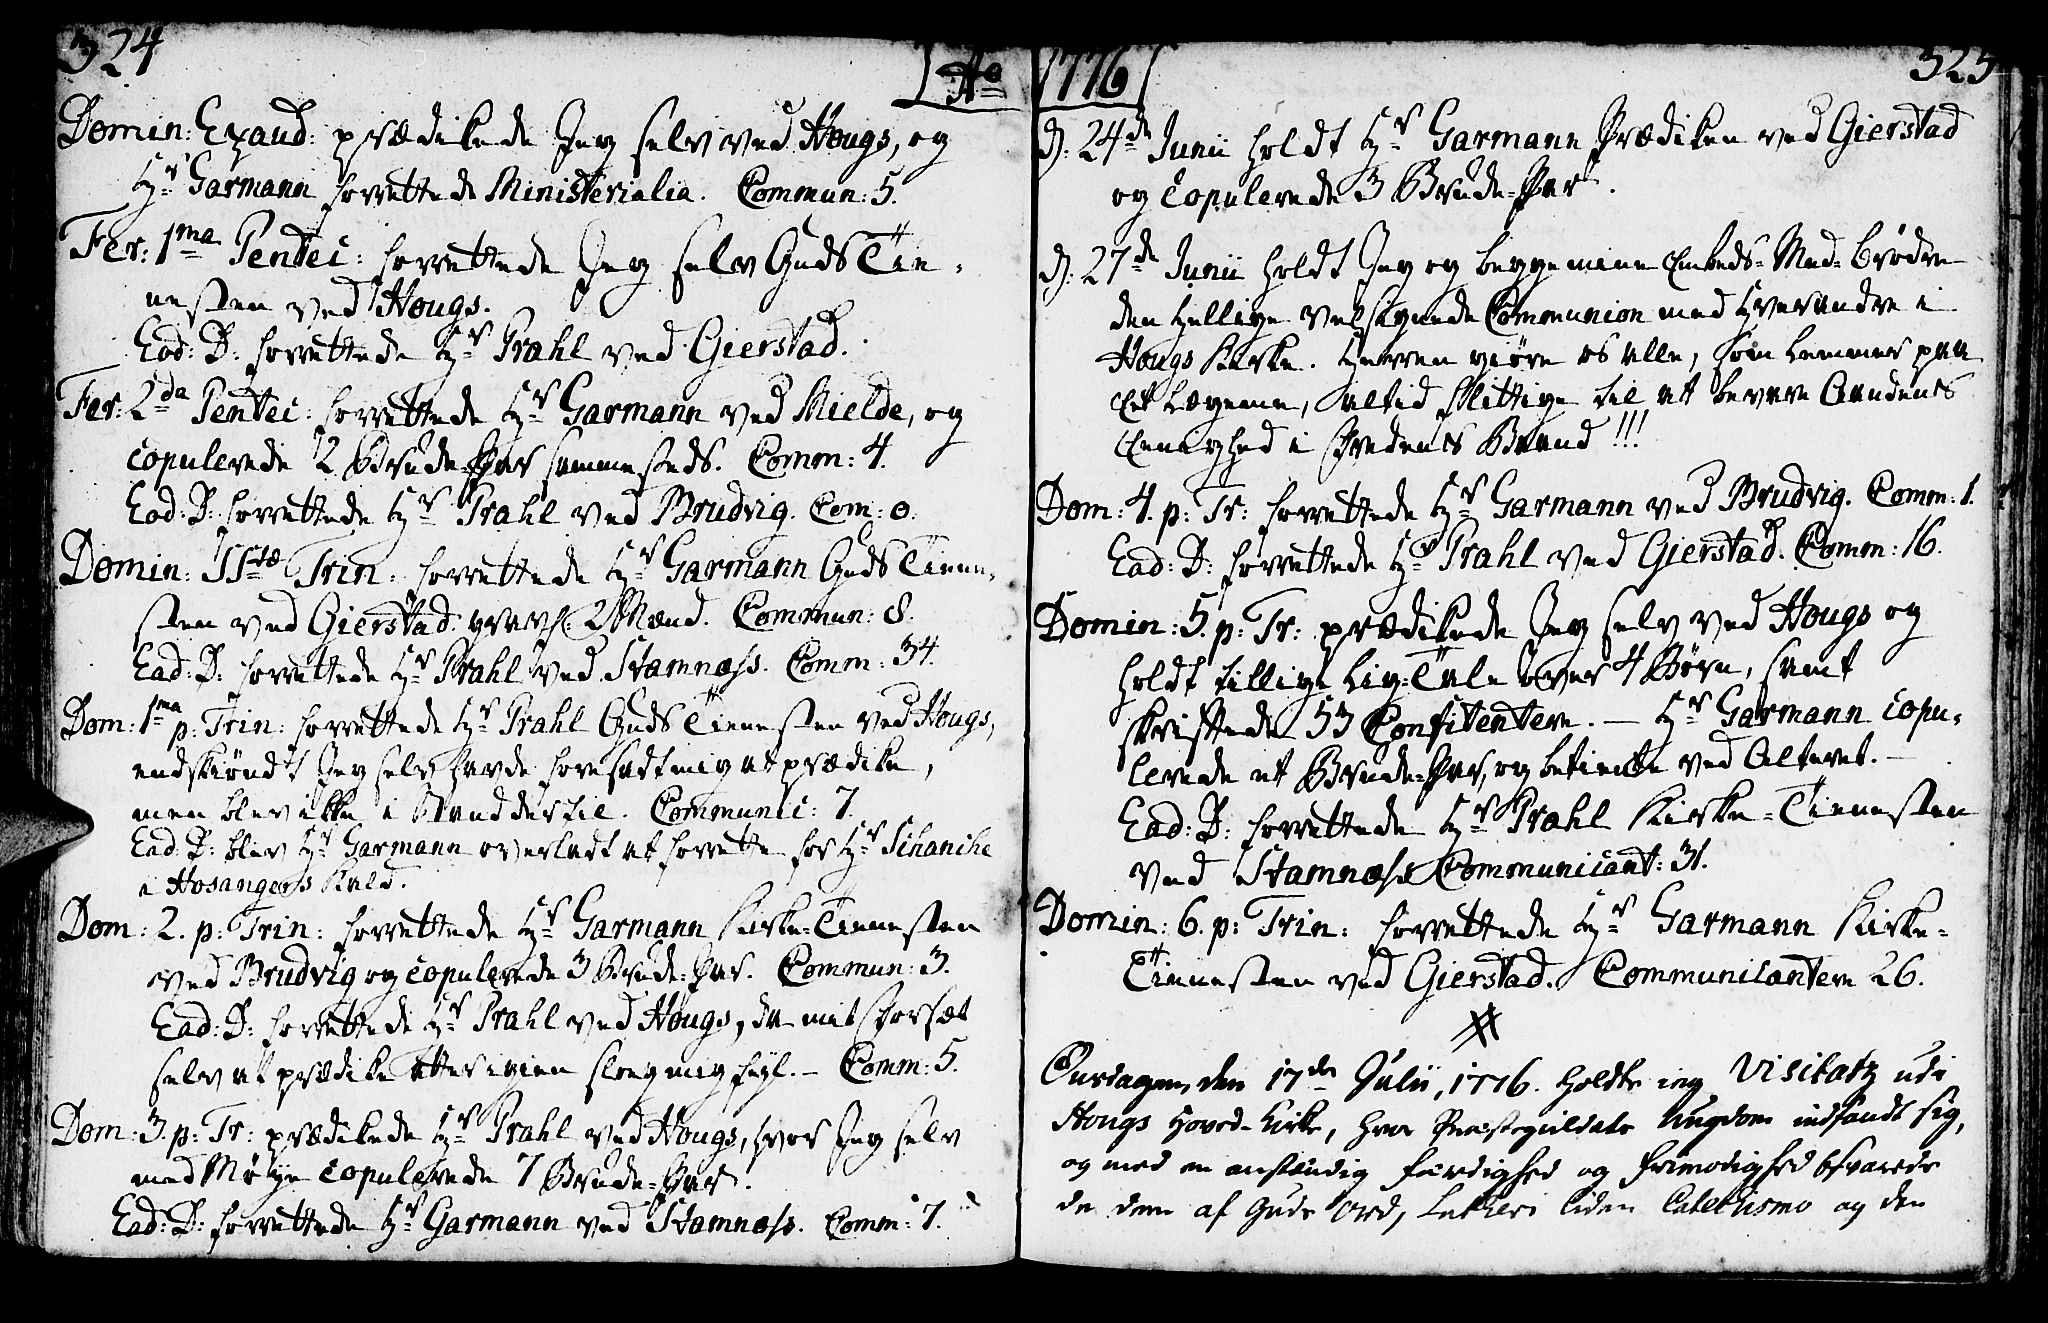 324
Domin: Exaud: prædikede Jeg selv ved Hougs, og
Hr Garmann forrettede Ministerialia. Commun: 5.
Fer: 1ma Pentec: forrettede Jeg selv Guds Tie-
nesten ved Hougs.
Eod: D: forrettede Hr Prahl ved Gierstad.
Fer: 2da Pentec: forrettede Hr Garmann ved Mielde, og
copulerede 2 Brude-Par sammesteds. Comm: 4.
Eod: D: forrettede Hr Prahl ved Brudvig. Com: 0.
Domin: SStæ Trin: forrettede Hr Garmann Guds Tiene-
sten ved Gierstad. 2 Mænd. Commun: 8.
Ead: D: forrettede Hr Prahl ved Stamnæss. Comm: 34.
Dom: 1ma p: Trin: forrettede Hr Prahl Guds Tienesten ved Hougs,
endskiøndt Jeg selv havde foresadt mig at prædike,
men blev ikke i Stand dertil. Communic: 7.
Ead: D: blev Hr Garmann overladt at forrette for Hr Schanche
i Hosangers Kald.
Dom: 2. p: Trin: forrettede Hr Garmann Kirke-Tienesten
ved Brudvig og copulerede 3 Brude-Par. Commun: 3.
Ead: D: forrettede Hr Prahl ved Hougs, da mit Forsæt
selv at prædike atter igien slog mig feyl. – Comm: 5.
Dom: 3. p: Tr: prædikede Hr Prahl ved Hougs, hvor Jeg selv
med Møye copulerede 7 Brude-Par.
Ead: D: forrettede Hr Garmann ved Stamnæss. Comm: 7.
Ao 1776
325
d: 24de Junii holdt Hr Garmann Prædiken ved Gierstad
og Copulerede 3 Brude-Par.
d: 27de Junii holdt Jeg og begge mine Embeds-Med-Brødre
den hellige velsignede Communion med hverandre i
Hougs Kirke. Herren giøre os alle, som Lemmer paa
Et Legeme, altid flittige til at bevare Aandens
Eenighed i Fredens Baand!!!
Dom: 4. p: Tr: forrettede Hr Garmann ved Brudvig. Comm: 1.
Ead: D: forrettede Hr Prahl ved Gierstad. Comm: 16.
Domin: 5. p: Tr: prædikede Jeg selv ved Hougs og
holdt tillige Lig-Tale over 4 Børn, samt
skriftede 53 Confitentere. – Hr Garmann copu-
lerede et Brude-Par, og betiente ved Alteret. –
Ead: D: forrettede Hr Prahl Kirke-Tienesten
ved Stamnæss Communicant: 31.
Domin: 6. p: Trin: forrettede Hr Garmann Kirke-
Tienesten ved Gierstad. Communicantere 26.
Onsdagen, den 17de Julii, 1776. holdte ieg Visitatz udi
Hougs Hoved-Kirke, hvor Præstegieldets Ungdom indfandt sig,
og med en anstændig færdighed og frimodighed besvarede
de dem af Guds Ord, Lutheri liden Catechismo og den